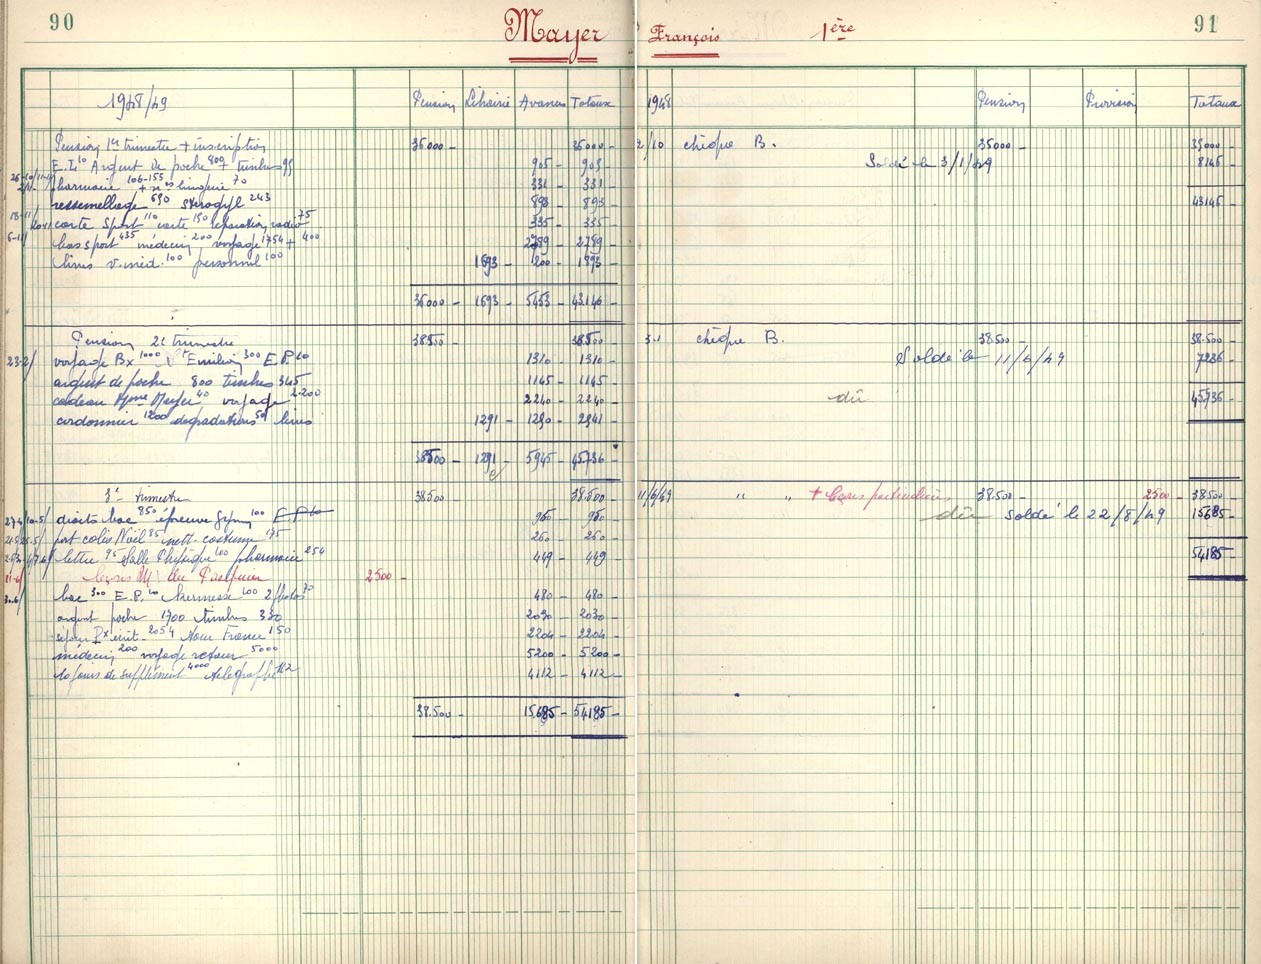 90
Mayer François 1ère
91
1948/49 Pension Librairie Avances Totaux
1948 Pension Provision Totaux
Pension 1er trimestre + inscription 36000 - 36000 -
2/10 chèque B. 35000 - 35000 -
Argent de poche 800 + timbres 95 905 - 905 -
Soldé le 3/1/49 8146 -
pharmacie 106-155 + nos lingerie 70 331 - 331 -
ressemellage 650 243 893 - 893 -
43146 -
carte sport 110 carte 150 réparation radio 75 335 - 335 -
bas sport 435 médecin 200 voyage 1754 + 400 2789 - 2789 -
livres v. méd. 100 personnel 100 1693 - 200 - 1893 -
36000 - 1693 - 5453 - 43146 -
Pension 2e trimestre 38500 - 38.500 -
3-1 chèque B. 38.500 - 38.500 -
23-2/ voyage Bx 1000 St Emilion 300 E.P. 10 1310 - 1310 -
Soldé le 11/6/49 7236 -
argent de poche 800 timbres 345 1145 - 1145 -
cadeau Mme Meyer 40 voyage 2.200 2240 - 2240 -
dû 45.736 -
cordonnier 1200 dégradations 50 livres 1291 - 1250 - 2541 -
38500 - 1291 - 5945 - 45.736 -
3e trimestre 38500 - 38.500 -
11/6/49 " " + Leçons particulières 38.500 - 2500 - 38.500 -
droits bac 850 épreuve gym 100 E.P. 10 950 - 950 -
dû soldé le 22/8/49 15685 -
port colis Noël 85 nett. costume 175 260 - 260 -
lettre 95 Salle Physique 100 pharmacie 254 449 - 449 -
54185 -
Leçons Mr du Pasquier 2500 -
bac 300 E.P. 10 kermesse 100 2 photos 70 480 - 480 -
argent poche 1700 timbres 330 2030 - 2030 -
séjour Bx écrit 2054 Tour France 150 2204 - 2204 -
médecin 200 voyage retour 5000 5200 - 5200 -
10 jours de supplément 4000 télégraphe 112 4112 - 4112 -
38.500 - 15.685 - 54185 -